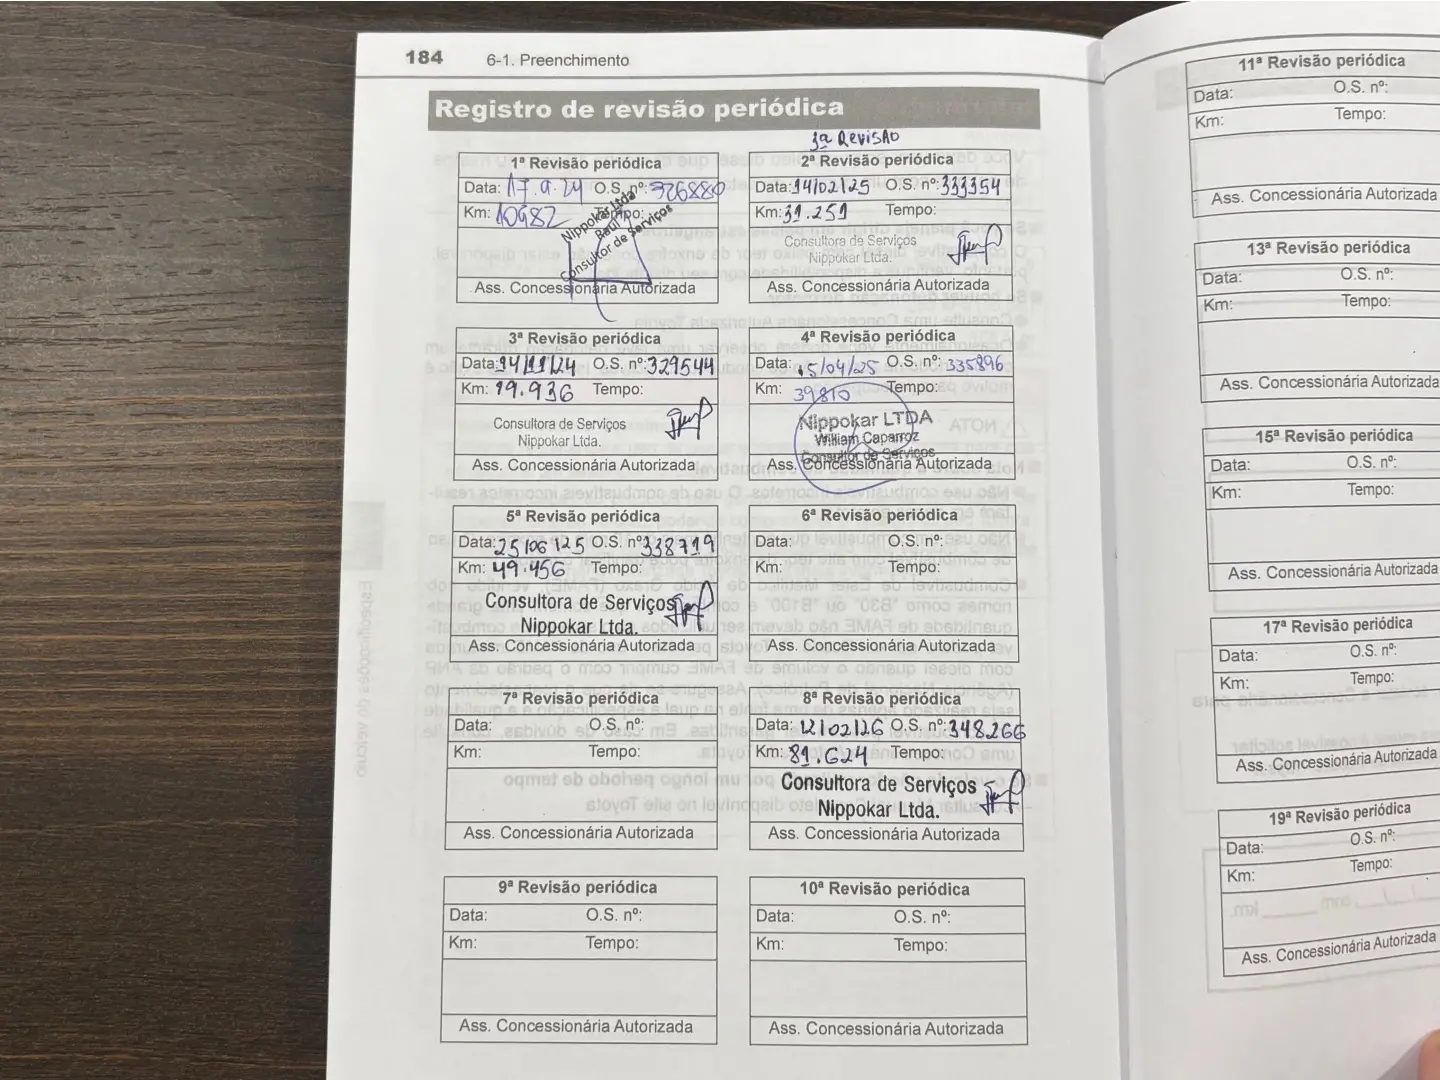 184 6-1. Preenchimento
Registro de revisão periódica
3ª Revisão
1ª Revisão periódica
Data: 17.9.24 O.S. nº: 326880
Km: 10982 Tempo:
Nippokar Ltda
Consultor de Serviços
Ass. Concessionária Autorizada
2ª Revisão periódica
Data: 14/02/25 O.S. nº: 333354
Km: 31.251 Tempo:
Consultora de Serviços
Nippokar Ltda.
Ass. Concessionária Autorizada
3ª Revisão periódica
Data: 14/11/24 O.S. nº: 329544
Km: 19.936 Tempo:
Consultora de Serviços
Nippokar Ltda.
Ass. Concessionária Autorizada
4ª Revisão periódica
Data: 15/04/25 O.S. nº: 335896
Km: 39810 Tempo:
Nippokar LTDA
William Caparroz
Consultor de Serviços
Ass. Concessionária Autorizada
5ª Revisão periódica
Data: 25/06/25 O.S. nº 338719
Km: 49.456 Tempo:
Consultora de Serviços
Nippokar Ltda.
Ass. Concessionária Autorizada
6ª Revisão periódica
Data: O.S. nº:
Km: Tempo:
Ass. Concessionária Autorizada
7ª Revisão periódica
Data: O.S. nº:
Km: Tempo:
Ass. Concessionária Autorizada
8ª Revisão periódica
Data: 12/02/26 O.S. nº: 348.266
Km: 81.624 Tempo:
Consultora de Serviços
Nippokar Ltda.
Ass. Concessionária Autorizada
9ª Revisão periódica
Data: O.S. nº:
Km: Tempo:
Ass. Concessionária Autorizada
10ª Revisão periódica
Data: O.S. nº:
Km: Tempo:
Ass. Concessionária Autorizada
11ª Revisão periódica
Data: O.S. nº:
Km: Tempo:
Ass. Concessionária Autorizada
13ª Revisão periódica
Data: O.S. nº:
Km: Tempo:
Ass. Concessionária Autorizada
15ª Revisão periódica
Data: O.S. nº:
Km: Tempo:
Ass. Concessionária Autorizada
17ª Revisão periódica
Data: O.S. nº:
Km: Tempo:
Ass. Concessionária Autorizada
19ª Revisão periódica
Data: O.S. nº:
Km: Tempo:
Ass. Concessionária Autorizada